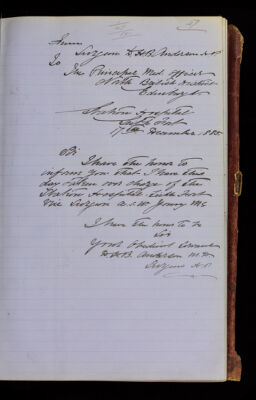 27
From
Surgeon D. H. B. Anderson A.P
To
The Principal Med Officer
North British District
Edinbgh.
Station Hospital
Leith Fort
17th December 1885
Sir
I have the honor to
inform you that I have this
day taken over charge of the
Station Hospital Leith Fort
vice Surgeon A. S. W. Young MC
I have the honor to be
Sir
Your Obedient Servant
D. H. B. Anderson M.B.
Surgeon A.P.